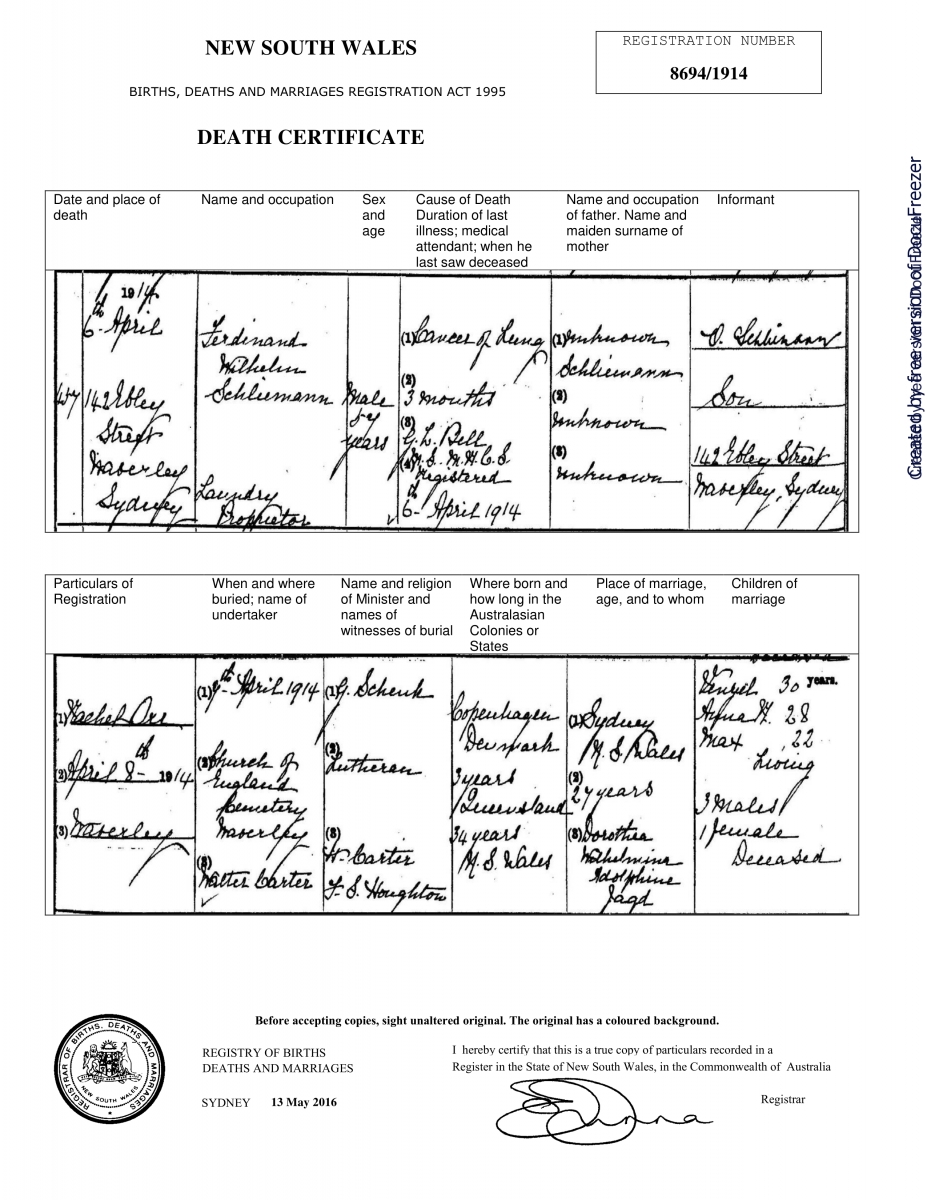 NEW SOUTH WALES
REGISTRATION NUMBER
8694/1914
BIRTHS, DEATHS AND MARRIAGES REGISTRATION ACT 1995
DEATH CERTIFICATE
Date and place of
death
Name and occupation
Sex
and
age
Cause of Death
Duration of last
illness; medical
attendant; when he
last saw deceased
Name and occupation
of father. Name and
maiden surname of
mother
Informant
1914
6th April
457
142 Ebley
Street
Waverley
Sydney
Ferdinand
Wilhelm
Schliemann
Laundry
Proprietor
Male
57
years
(1) Cancer of Lung
(2)
3 months
(3)
G. L. Bell
Registered
6th April 1914
(1) Unknown
Schliemann
(2)
Unknown
(3)
Unknown
O. Schliemann
Son
142 Ebley Street
Waverley, Sydney
Particulars of
Registration
When and where
buried; name of
undertaker
Name and religion
of Minister and
names of
witnesses of burial
Where born and
how long in the
Australasian
Colonies or
States
Place of marriage,
age, and to whom
Children of
marriage
(1) Rachel Orr
(2) April 8th 1914
(3) Waverley
(1) 7th April 1914
(2) Church of
England
Cemetery
Waverley
(3)
Walter Carter
(1) G. Schenk
(2)
Lutheran
(3)
W. Carter
F. S. Houghton
Copenhagen
Denmark
3 years
Queensland
34 years
N. S. Wales
(1) Sydney
N. S. Wales
(2)
27 years
(3) Dorothea
Wilhelmine
Adolphine
Jagd
30 years.
28
Max 22
Living
3 Males
1 female
Deceased
Before accepting copies, sight unaltered original. The original has a coloured background.
REGISTRAR OF BIRTHS, DEATHS AND MARRIAGES
NEW SOUTH WALES
REGISTRY OF BIRTHS
DEATHS AND MARRIAGES
SYDNEY 13 May 2016
I hereby certify that this is a true copy of particulars recorded in a
Register in the State of New South Wales, in the Commonwealth of Australia
Registrar
Created by free version of DocuFreezer